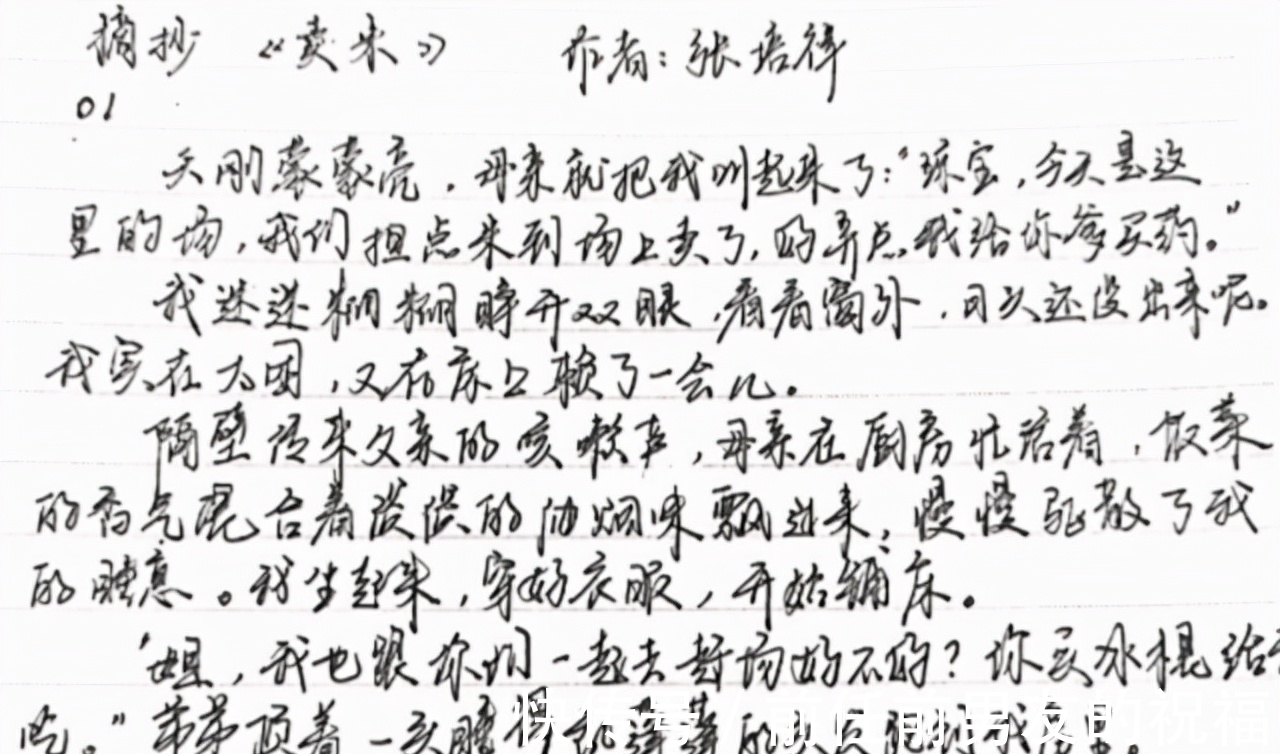 摘抄 《卖米》 作者:张培祥
01
天刚蒙蒙亮,母亲就把我叫起来了:“琼宝,今天是这
里的场,我们担点米到场上卖了,好弄点钱给你爹买药。”
我迷迷糊糊睁开双眼,看看窗外,日头还没出来呢。
我实在太困,又在床上赖了一会儿。
隔壁传来父亲的咳嗽声,母亲在厨房忙活着,饭菜
的香气混合着淡淡的油烟味飘过来,慢慢驱散了我
的睡意。我坐起来,穿好衣服,开始铺床。
“姐,我也跟你们一起去赶场好不好?你买冰棍给
吃。”弟弟顶着一头睡得
快传号 / 前任前男友的祝福